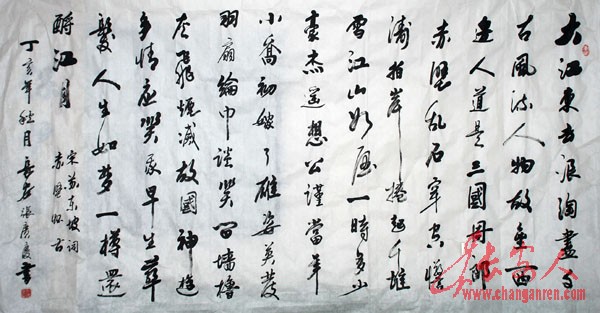 大江東去浪淘盡千
古風流人物故壘西
邊人道是三國周郎
赤壁亂石穿空驚
濤拍岸捲起千堆
雪江山如畫一時多少
豪杰遙想公瑾當年
小喬初嫁了雄姿英發
羽扇綸巾談笑間墙櫓
灰飛煙滅故國神遊
多情應笑我早生華
髮人生如夢一樽還
酹江月
宋蘇東坡詞
赤壁懷古
丁亥年秋月長安張書
長安人
www.changanren.com